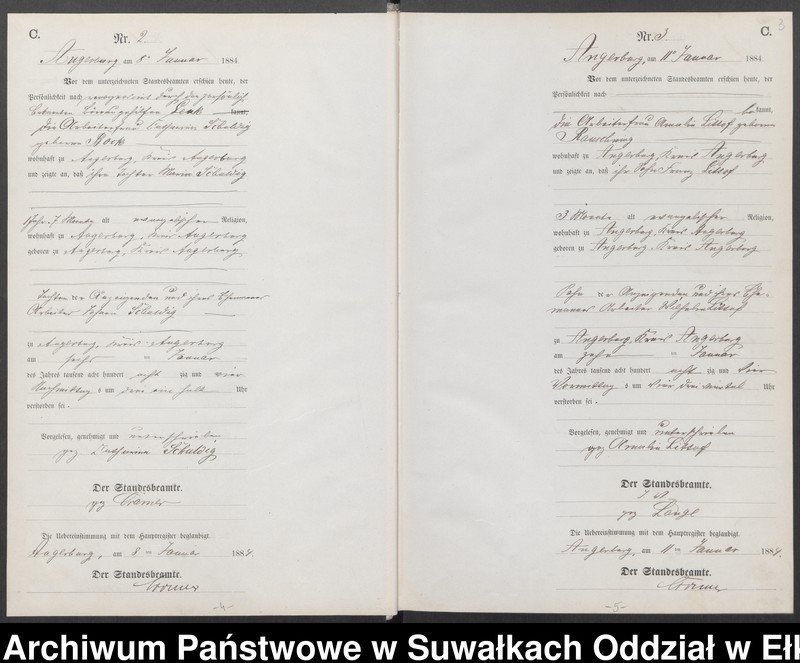 C.
Nr. 2.
Angerburg am 8ten Januar 1884.
Vor dem unterzeichneten Standesbeamten erschien heute, der
Persönlichkeit nach
kannt,
die Arbeiterfrau Catharina Schuldig
geborene
wohnhaft zu Angerburg, Kreis Angerburg
und zeigte an, daß ihre Tochter Maria Schuldig
1 Jahr 7 Monate alt evangelischer Religion,
wohnhaft zu Angerburg, Kreis Angerburg
geboren zu Angerburg, Kreis Angerburg,
Tochter der Anzeigenden und ihres Ehemannes
Arbeiter Johann Schuldig
zu Angerburg, Kreis Angerburg
am sechsten Januar
des Jahres tausend acht hundert acht zig und vier
Nachmittag s um drei ein halb Uhr
verstorben sei.
Vorgelesen, genehmigt und unterschrieben
gez Catharina Schuldig
Der Standesbeamte.
gez Cramer
Die Uebereinstimmung mit dem Hauptregister beglaubigt.
Angerburg, am 8ten Januar 1884.
Der Standesbeamte.
Cramer
-4-
3
C.
Nr. 3.
Angerburg, am 11ten Januar 1884.
Vor dem unterzeichneten Standesbeamten erschien heute, der
Persönlichkeit nach
be kannt,
die Arbeiterfrau Amalie geborene
wohnhaft zu Angerburg, Kreis Angerburg
und zeigte an, daß ihr Sohn Franz
3 Monate alt evangelischer Religion,
wohnhaft zu Angerburg, Kreis Angerburg
geboren zu Angerburg, Kreis Angerburg
Sohn der Anzeigenden und ihres Ehe-
mannes Arbeiter Wilhelm
zu Angerburg, Kreis Angerburg
am zehnten Januar
des Jahres tausend acht hundert acht zig und vier
Vormittag s um vier drei viertel Uhr
verstorben sei.
Vorgelesen, genehmigt und unterschrieben
gez Amalie
Der Standesbeamte.
gez
Die Uebereinstimmung mit dem Hauptregister beglaubigt.
Angerburg, am 11ten Januar 1884.
Der Standesbeamte.
Cramer
-5-
Archiwum Państwowe w Suwałkach Oddział w Ełk